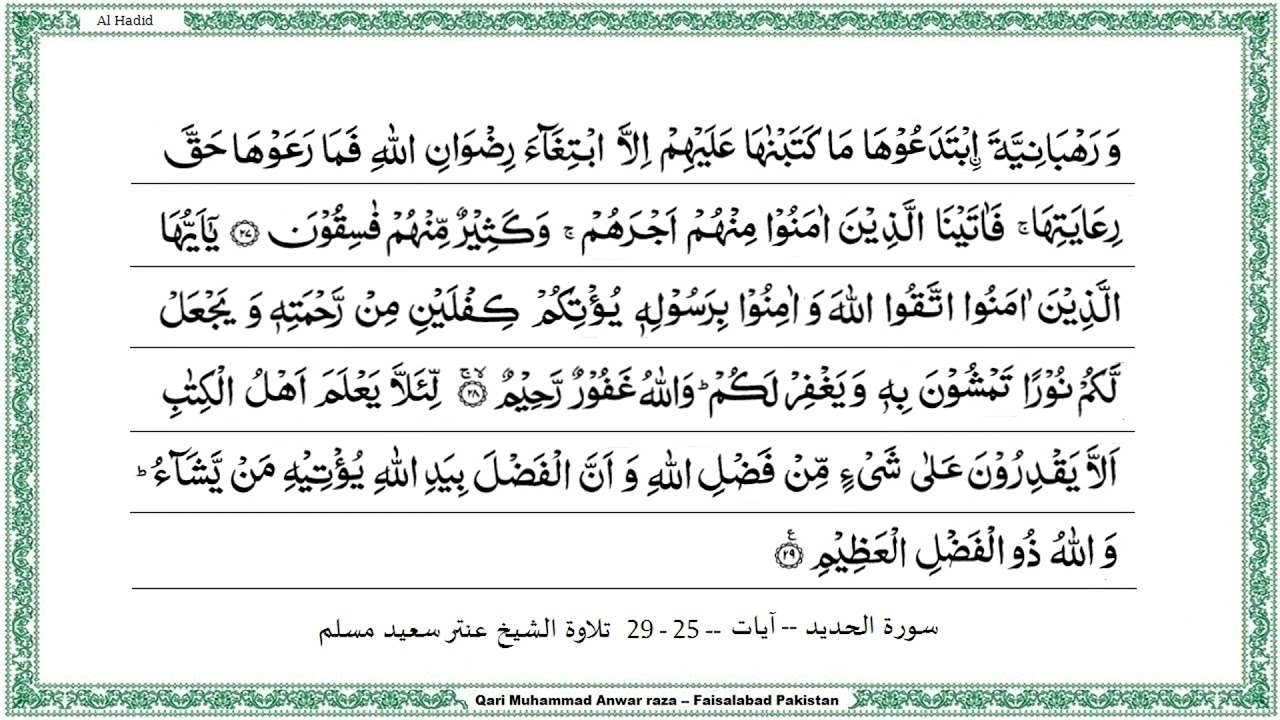 Al Hadid
وَ رَهْبَانِيَّةَ ِۨابْتَدَعُوْهَا مَا كَتَبْنٰهَا عَلَيْهِمْ اِلَّا ابْتِغَآءَ رِضْوَانِ اللّٰهِ فَمَا رَعَوْهَا حَقَّ
رِعَايَتِهَا ۚ فَاٰتَيْنَا الَّذِيْنَ اٰمَنُوْا مِنْهُمْ اَجْرَهُمْ ۚ وَ كَثِيْرٌ مِّنْهُمْ فٰسِقُوْنَ ﴿۲۷﴾ يٰۤاَيُّهَا
الَّذِيْنَ اٰمَنُوا اتَّقُوا اللّٰهَ وَ اٰمِنُوْا بِرَسُوْلِهٖ يُؤْتِكُمْ كِفْلَيْنِ مِنْ رَّحْمَتِهٖ وَ يَجْعَلْ
لَّكُمْ نُوْرًا تَمْشُوْنَ بِهٖ وَ يَغْفِرْ لَكُمْ ؕ وَاللّٰهُ غَفُوْرٌ رَّحِيْمٌ ﴿۲۸﴾ ۙۚ لِّئَلَّا يَعْلَمَ اَهْلُ الْكِتٰبِ
اَلَّا يَقْدِرُوْنَ عَلٰى شَىْءٍ مِّنْ فَضْلِ اللّٰهِ وَ اَنَّ الْفَضْلَ بِيَدِ اللّٰهِ يُؤْتِيْهِ مَنْ يَّشَآءُ ؕ
وَ اللّٰهُ ذُو الْفَضْلِ الْعَظِيْمِ ﴿۲۹﴾ ع
سورة الحديد -- آيات -- 25 - 29 تلاوة الشيخ عنتر سعيد مسلم
Qari Muhammad Anwar raza -- Faisalabad Pakistan